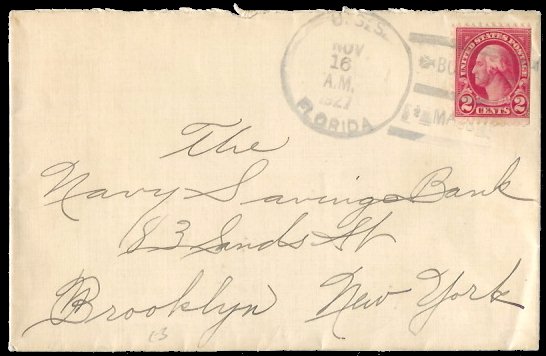 U.S.S.
NOV
16
A.M.
1927
FLORIDA
UNITED STATES POSTAGE
2 CENTS 2
The
Navy Savings Bank
83 Sands St
Brooklyn New York